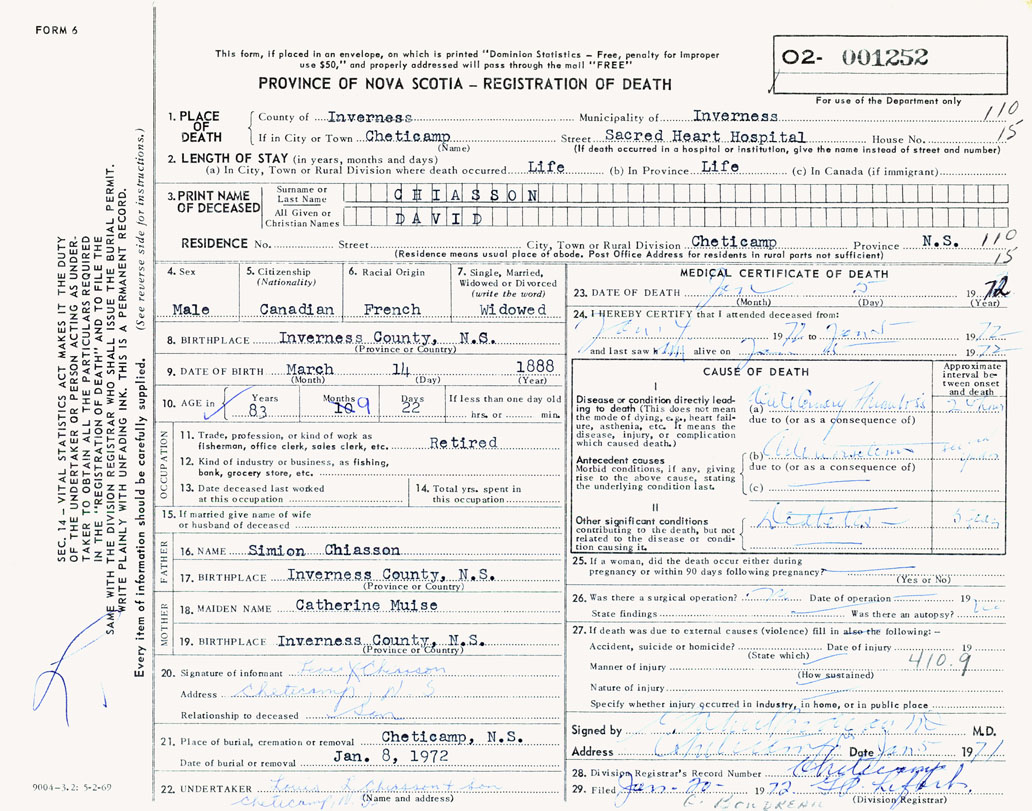 FORM 6
This form, if placed in an envelope, on which is printed "Dominion Statistics – Free, penalty for improper
use $50," and properly addressed will pass through the mail "FREE"
PROVINCE OF NOVA SCOTIA – REGISTRATION OF DEATH
02- 001252
For use of the Department only
1. PLACE OF DEATH
County of Inverness Municipality of Inverness 110
If in City or Town Cheticamp Street Sacred Heart Hospital House No. 15
(Name) (If death occurred in a hospital or institution, give the name instead of street and number)
2. LENGTH OF STAY (in years, months and days)
(a) In City, Town or Rural Division where death occurred Life (b) In Province Life (c) In Canada (if immigrant)
3. PRINT NAME OF DECEASED
Surname or Last Name CHIASSON
All Given or Christian Names DAVID
RESIDENCE No. Street City, Town or Rural Division Cheticamp Province N.S. 110
(Residence means usual place of abode. Post Office Address for residents in rural parts not sufficient) 15
4. Sex
Male
5. Citizenship
(Nationality)
Canadian
6. Racial Origin
French
7. Single, Married,
Widowed or Divorced
(write the word)
Widowed
8. BIRTHPLACE Inverness County, N.S.
(Province or Country)
9. DATE OF BIRTH March 14 1888
(Month) (Day) (Year)
10. AGE in
Years Months Days If less than one day old
83 10 9 22 hrs. or min.
OCCUPATION
11. Trade, profession, or kind of work as
fisherman, office clerk, sales clerk, etc. Retired
12. Kind of industry or business, as fishing,
bank, grocery store, etc.
13. Date deceased last worked
at this occupation
14. Total yrs. spent in
this occupation
15. If married give name of wife
or husband of deceased
FATHER
16. NAME Simion Chiasson
17. BIRTHPLACE Inverness County, N.S.
(Province or Country)
MOTHER
18. MAIDEN NAME Catherine Muise
19. BIRTHPLACE Inverness County, N.S.
(Province or Country)
20. Signature of informant Chiasson
Address Cheticamp, N.S
Relationship to deceased Son
21. Place of burial, cremation or removal Cheticamp, N.S.
Date of burial or removal Jan. 8, 1972
22. UNDERTAKER Louis Chiasson + son
Cheticamp, N.S.
(Name and address)
MEDICAL CERTIFICATE OF DEATH
23. DATE OF DEATH Jan 5 1972
(Month) (Day) (Year)
24. I HEREBY CERTIFY that I attended deceased from:
1972 to 1972
and last saw alive on 1972
CAUSE OF DEATH
Approximate
interval be-
tween onset
and death
I
Disease or condition directly lead-
ing to death (This does not mean
the mode of dying, e.g., heart fail-
ure, asthenia, etc. It means the
disease, injury, or complication
which caused death.)
(a) Thrombosis
due to (or as a consequence of)
Antecedent causes
Morbid conditions, if any, giving
rise to the above cause, stating
the underlying condition last.
(b)
due to (or as a consequence of)
(c)
II
Other significant conditions
contributing to the death, but not
related to the disease or condi-
tion causing it.
25. If a woman, did the death occur either during
pregnancy or within 90 days following pregnancy?
(Yes or No)
26. Was there a surgical operation? Date of operation 19
State findings Was there an autopsy?
27. If death was due to external causes (violence) fill in also the following: –
Accident, suicide or homicide? Date of injury 19
(State which)
Manner of injury 410.9
(How sustained)
Nature of injury
Specify whether injury occurred in industry, in home, or in public place
Signed by M.D.
Address Cheticamp Date Jan 5 1971
28. Division Registrar's Record Number Cheticamp
29. Filed Jan-20- 1972
(Division Registrar)
SEC. 14 – VITAL STATISTICS ACT MAKES IT THE DUTY
OF THE UNDERTAKER OR PERSON ACTING AS UNDER-
TAKER TO OBTAIN ALL THE PARTICULARS REQUIRED
IN THE "REGISTRATION OF DEATH" AND TO FILE THE
SAME WITH THE DIVISION REGISTRAR WHO SHALL ISSUE THE BURIAL PERMIT.
WRITE PLAINLY WITH UNFADING INK. THIS IS A PERMANENT RECORD.
Every item of information should be carefully supplied. (See reverse side for instructions.)
9004-3.2: 5-2-69